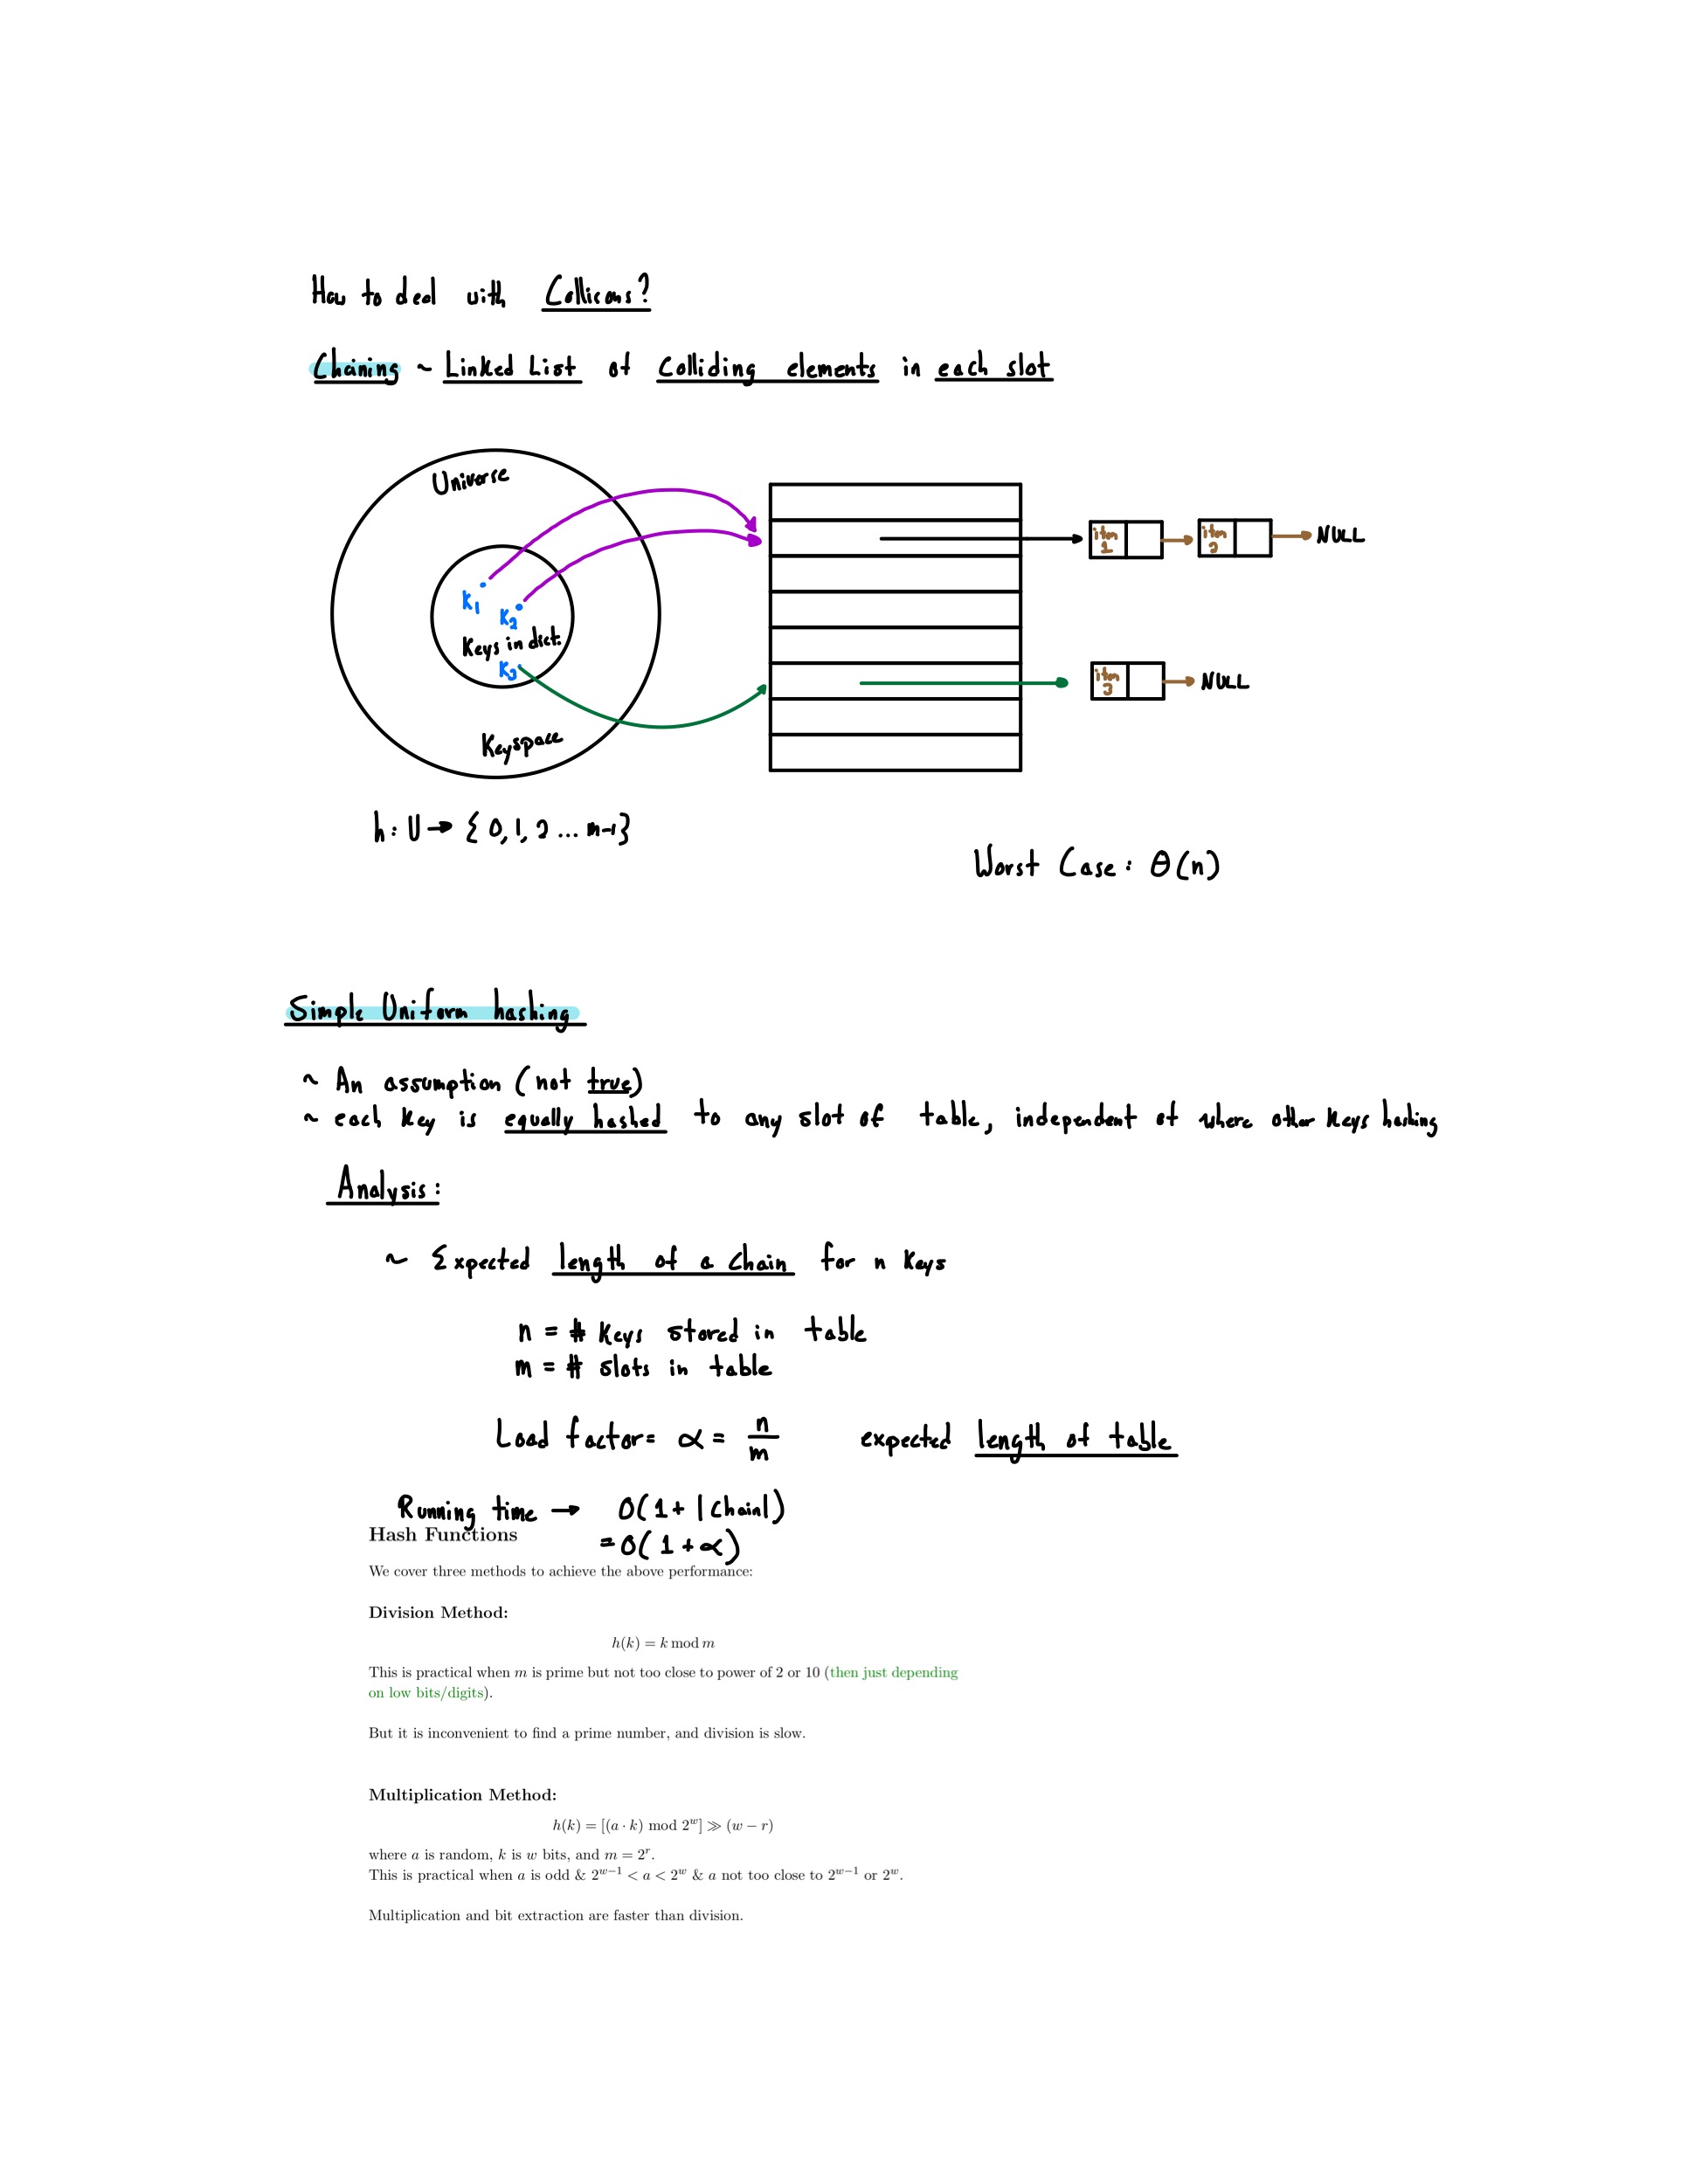 How to deal with Collisons?
Chaining ~ Linked List of Colliding elements in each slot
Universe
K1
K2
Keys in dict.
K3
Keyspace
item 1
item 2
NULL
item 3
NULL
h: U → { 0, 1, 2 ... m-1}
Worst Case: θ(n)
Simple Uniform hashing
~ An assumption (not true)
~ each key is equally hashed to any slot of table, independent of where other keys hashing
Analysis:
~ Expected length of a chain for n keys
n = # keys stored in table
m = # slots in table
Load factor= α = n/m expected length of table
Running time → O(1 + |chain|)
= O(1 + α)
Hash Functions
We cover three methods to achieve the above performance:
Division Method:
h(k) = k mod m
This is practical when m is prime but not too close to power of 2 or 10 (then just depending
on low bits/digits).
But it is inconvenient to find a prime number, and division is slow.
Multiplication Method:
h(k) = [(a · k) mod 2^w] ≫ (w − r)
where a is random, k is w bits, and m = 2^r.
This is practical when a is odd & 2^{w−1} < a < 2^w & a not too close to 2^{w−1} or 2^w.
Multiplication and bit extraction are faster than division.